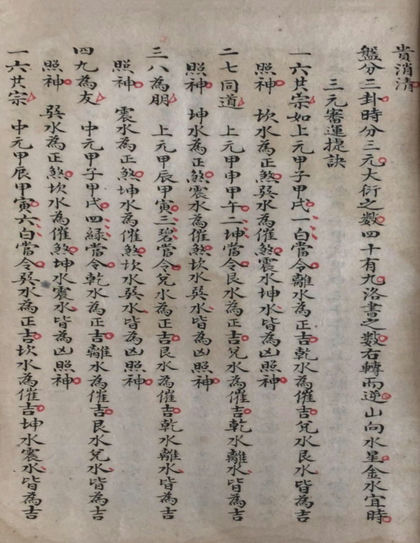 貴消清
盤分二卦時分三元大衍之數四十有九洛書之數右轉而逆山向水星金水宜時
三元審運捷訣
一六共宗如上元甲子甲戌一白當令離水為正吉乾水為催吉艮水兌水皆為吉
照神 坎水為正煞巽水為催煞震水坤水皆為凶照神
二七同道 上元甲申甲午二坤當令艮水為正吉兌水為催吉乾水離水皆為吉
照神 坤水為正煞震水為催煞坎水巽水皆為凶照神
三八為朋 上元甲辰甲寅三碧當令兌水為正吉艮水為催吉乾水離水皆為吉
照神 震水為正煞坤水為催煞坎水巽水皆為凶照神
四九為友 中元甲子甲戌四綠當令乾水為正吉離水為催吉艮水兌水皆為吉
照神 巽水為正煞坎水為催煞坤水震水皆為凶照神
一六共宗 中元甲辰甲寅六白當令巽水為正吉坎水為催吉坤水震水皆為吉